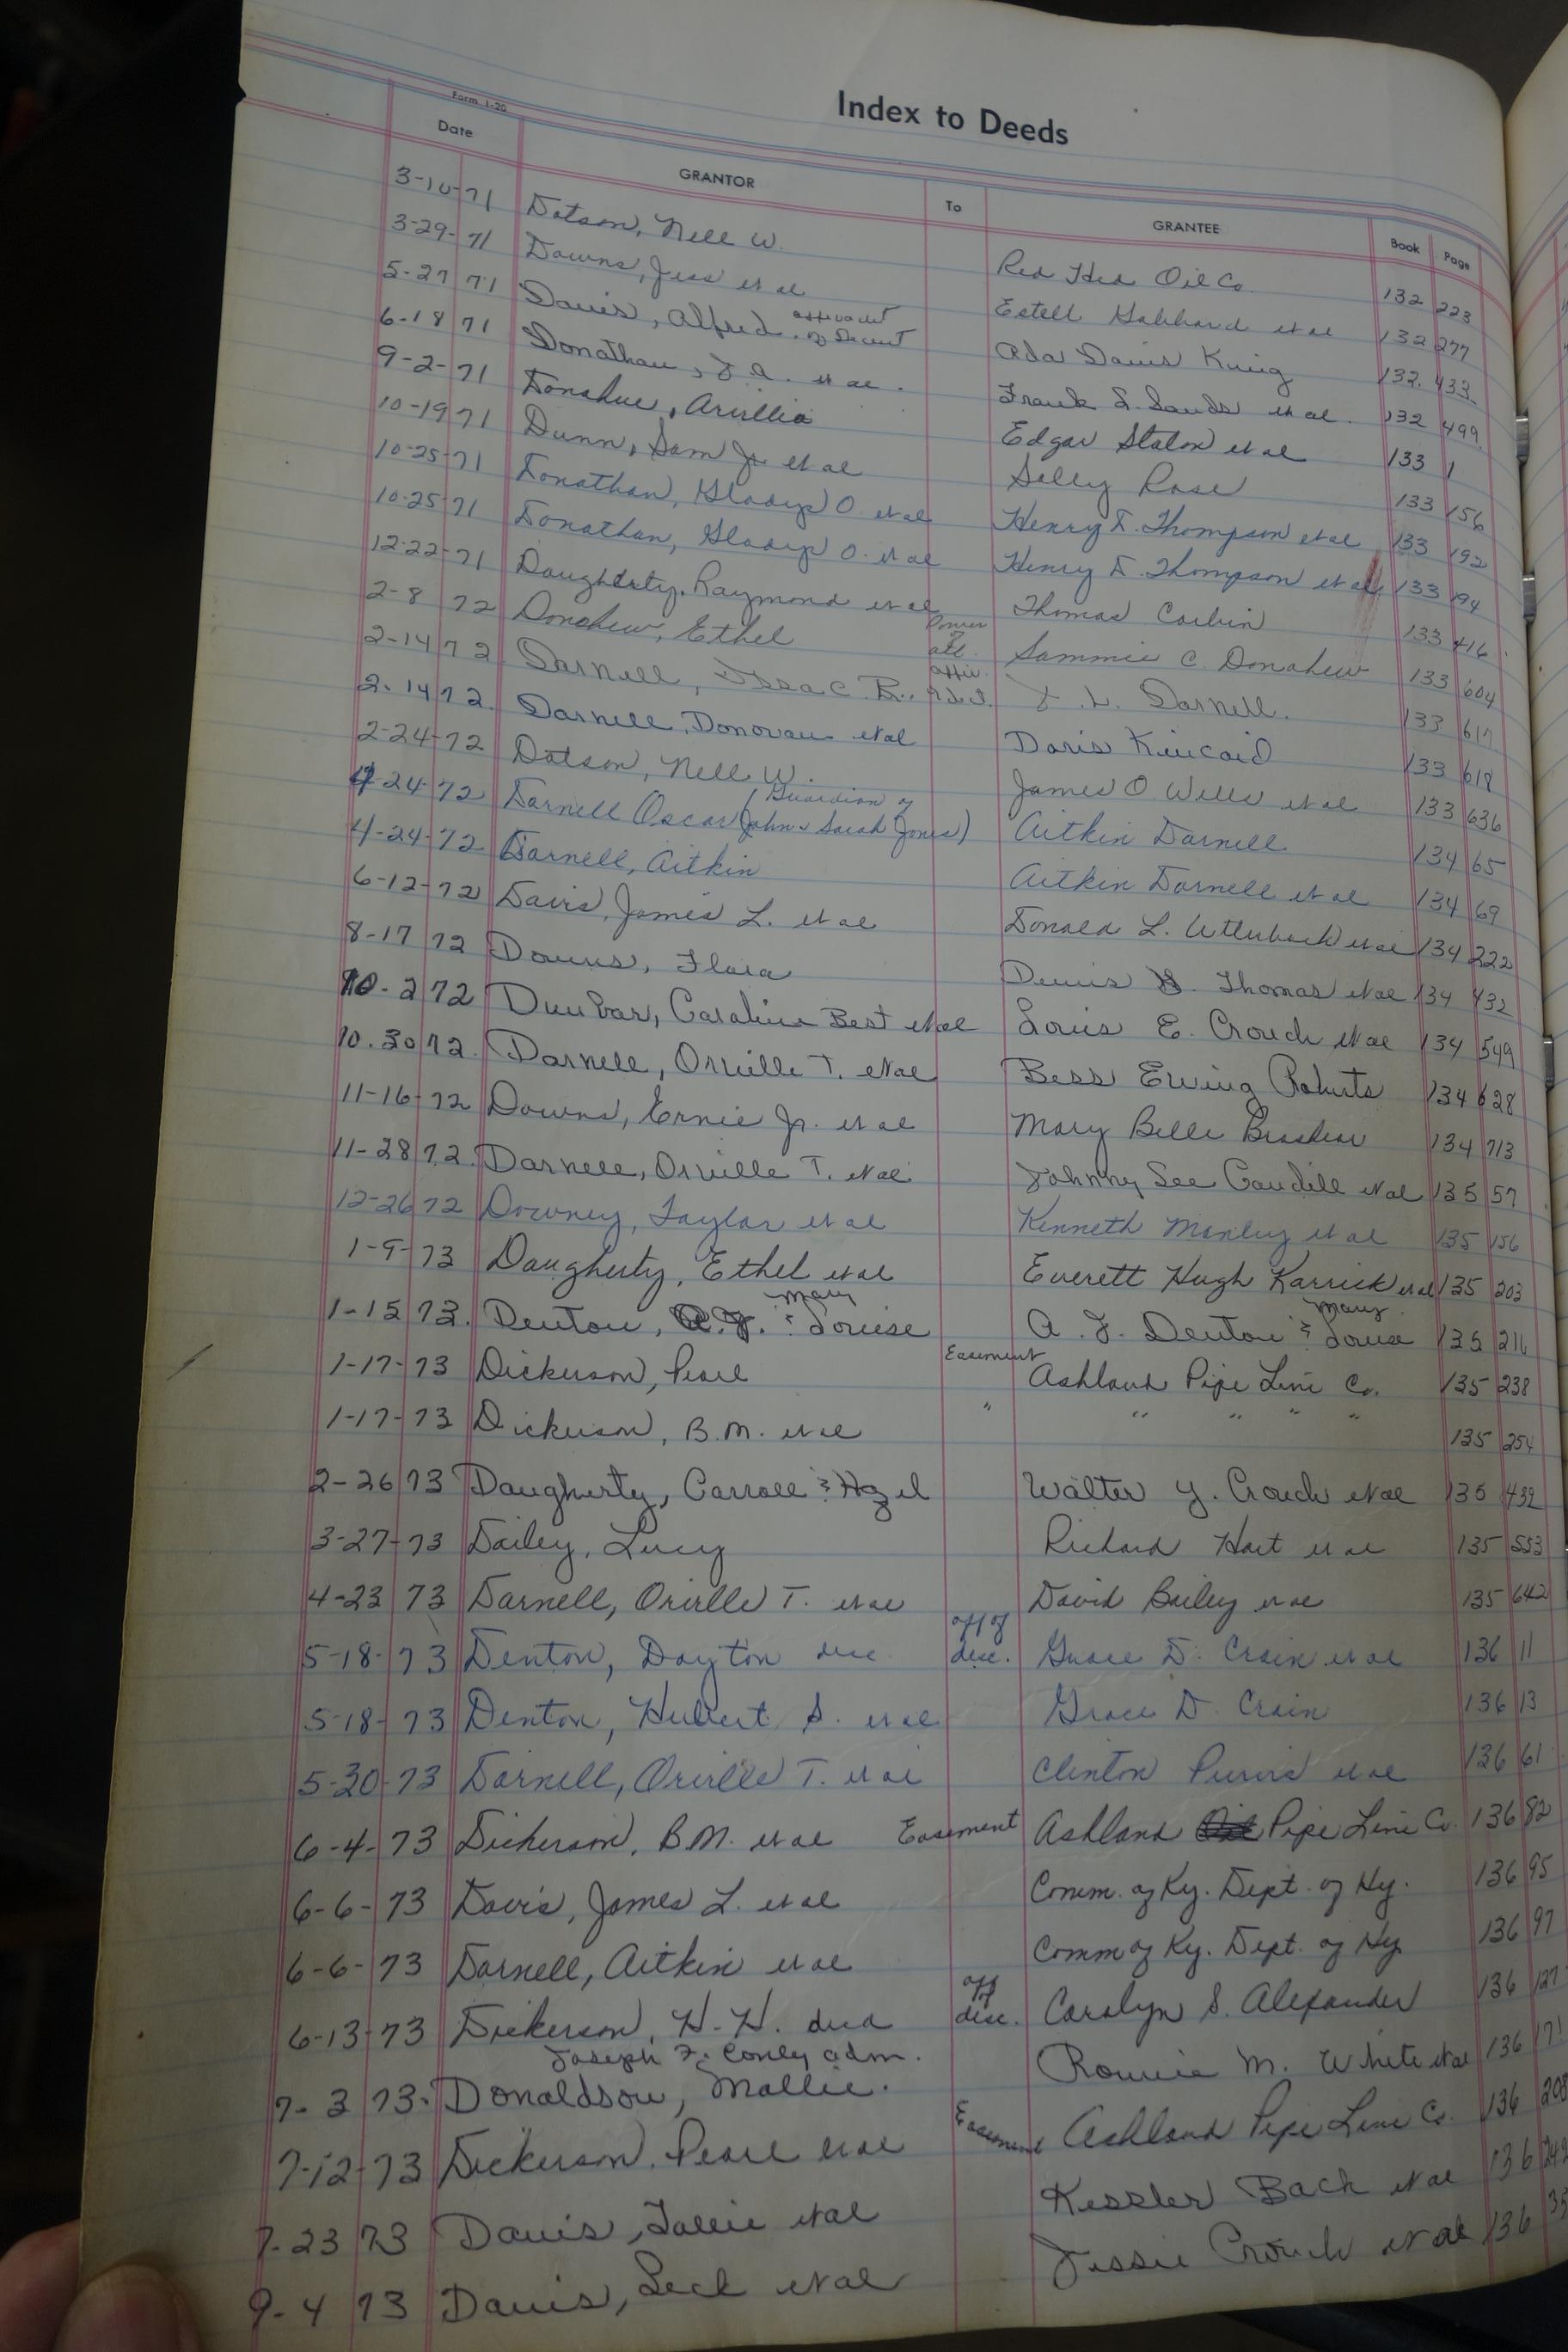 Index to Deeds
Form 1-20
Date GRANTOR To GRANTEE Book Page
3-10-71 Dotson, Nell W. Red Hed Oil Co. 132 223
3-29-71 Downs, Jess et al Estell Hubbard et al 132 277
5-27 71 Davis, Alfred affidavit of Decent Ada Davis King 132 433
6-18 71 Donathan, J. A. et al. Frank L. Sands et al. 132 499
9-2-71 Donahue, Arvillia Edgar Staton et al 133 1
10-19 71 Dunn, Sam Jr et al Selby Rose 133 156
10-25-71 Donathan, Gladys O. et al Henry D. Thompson et al 133 192
10-25-71 Donathan, Gladys O. et al Henry D. Thompson et al 133 194
12-22-71 Daugherty, Raymond et al Thomas Corbin 133 416
2-8 72 Donohew, Ethel Power of att. Sammie C. Donohew 133 604
2-14 72 Darnell, Issac B. affi. of des. J. L. Darnell 133 617
2-14 72 Darnell, Donovan et al Doris Kincaid 133 618
2-24-72 Dotson, Nell W. James O Wells et al 133 636
4-24-72 Darnell Oscar (Guardian of John & Sarah Jones) Aitkin Darnell 134 65
4-24-72 Darnell, Aitkin Aitkin Darnell et al 134 69
6-12-72 Davis, James L. et al Donald L. Utterback et al 134 222
8-17 72 Downs, Flora Denis G. Thomas et al 134 432
10-2 72 Dunbar, Caroline Best et al Louis E. Crouch et al 134 549
10-30 72 Darnell, Orville T. et al Bess Ewing Roberts 134 628
11-16-72 Downs, Ernie Jr. et al Mary Belle Brashear 134 713
11-28 72 Darnell, Orville T. et al Johnny See Caudill et al 135 57
12-26 72 Downey, Taylor et al Kenneth Manley et al 135 156
1-9-73 Daugherty, Ethel et al Everett Hugh Karrick et al 135 203
1-15 73 Denton, A. J. & Mary Louise A. J. Denton & Mary Louise 135 216
1-17-73 Dickerson, Pearl Easement Ashland Pipe Line Co. 135 238
1-17-73 Dickerson, B. M. et al " " " " " 135 254
2-26 73 Daugherty, Carroll & Hazel Walter Y. Crouch et al 135 439
3-27-73 Dailey, Lucy Richard Hart et al 135 553
4-23 73 Darnell, Orville T. et al David Bailey et al 135 642
5-18-73 Denton, Dayton dec. aff of desc. Grace D. Crain et al 136 11
5-18-73 Denton, Hubert S. et al Grace D. Crain 136 13
5-30-73 Darnell, Orville T. et al Clinton Purvis et al 136 61
6-4-73 Dickerson, B. M. et al Easement Ashland Pipe Line Co. 136 82
6-6-73 Davis, James L. et al Comm. of Ky. Dept. of Hy. 136 95
6-6-73 Darnell, Aitkin et al Comm of Ky. Dept. of Hy. 136 97
6-13-73 Dickerson, H. H. decd aff of desc. Carolyn S. Alexander 136 127
Joseph F. Conley adm.
7-3 73 Donaldson, Mallie. Ronnie M. White et al 136 171
7-12-73 Dickerson, Pearl et al Easement Ashland Pipe Line Co. 136 208
7-23 73 Davis, Tollie et al Kessler Back et al 136 242
9-4 73 Davis, Leck et al Jessie Crouch et al 136